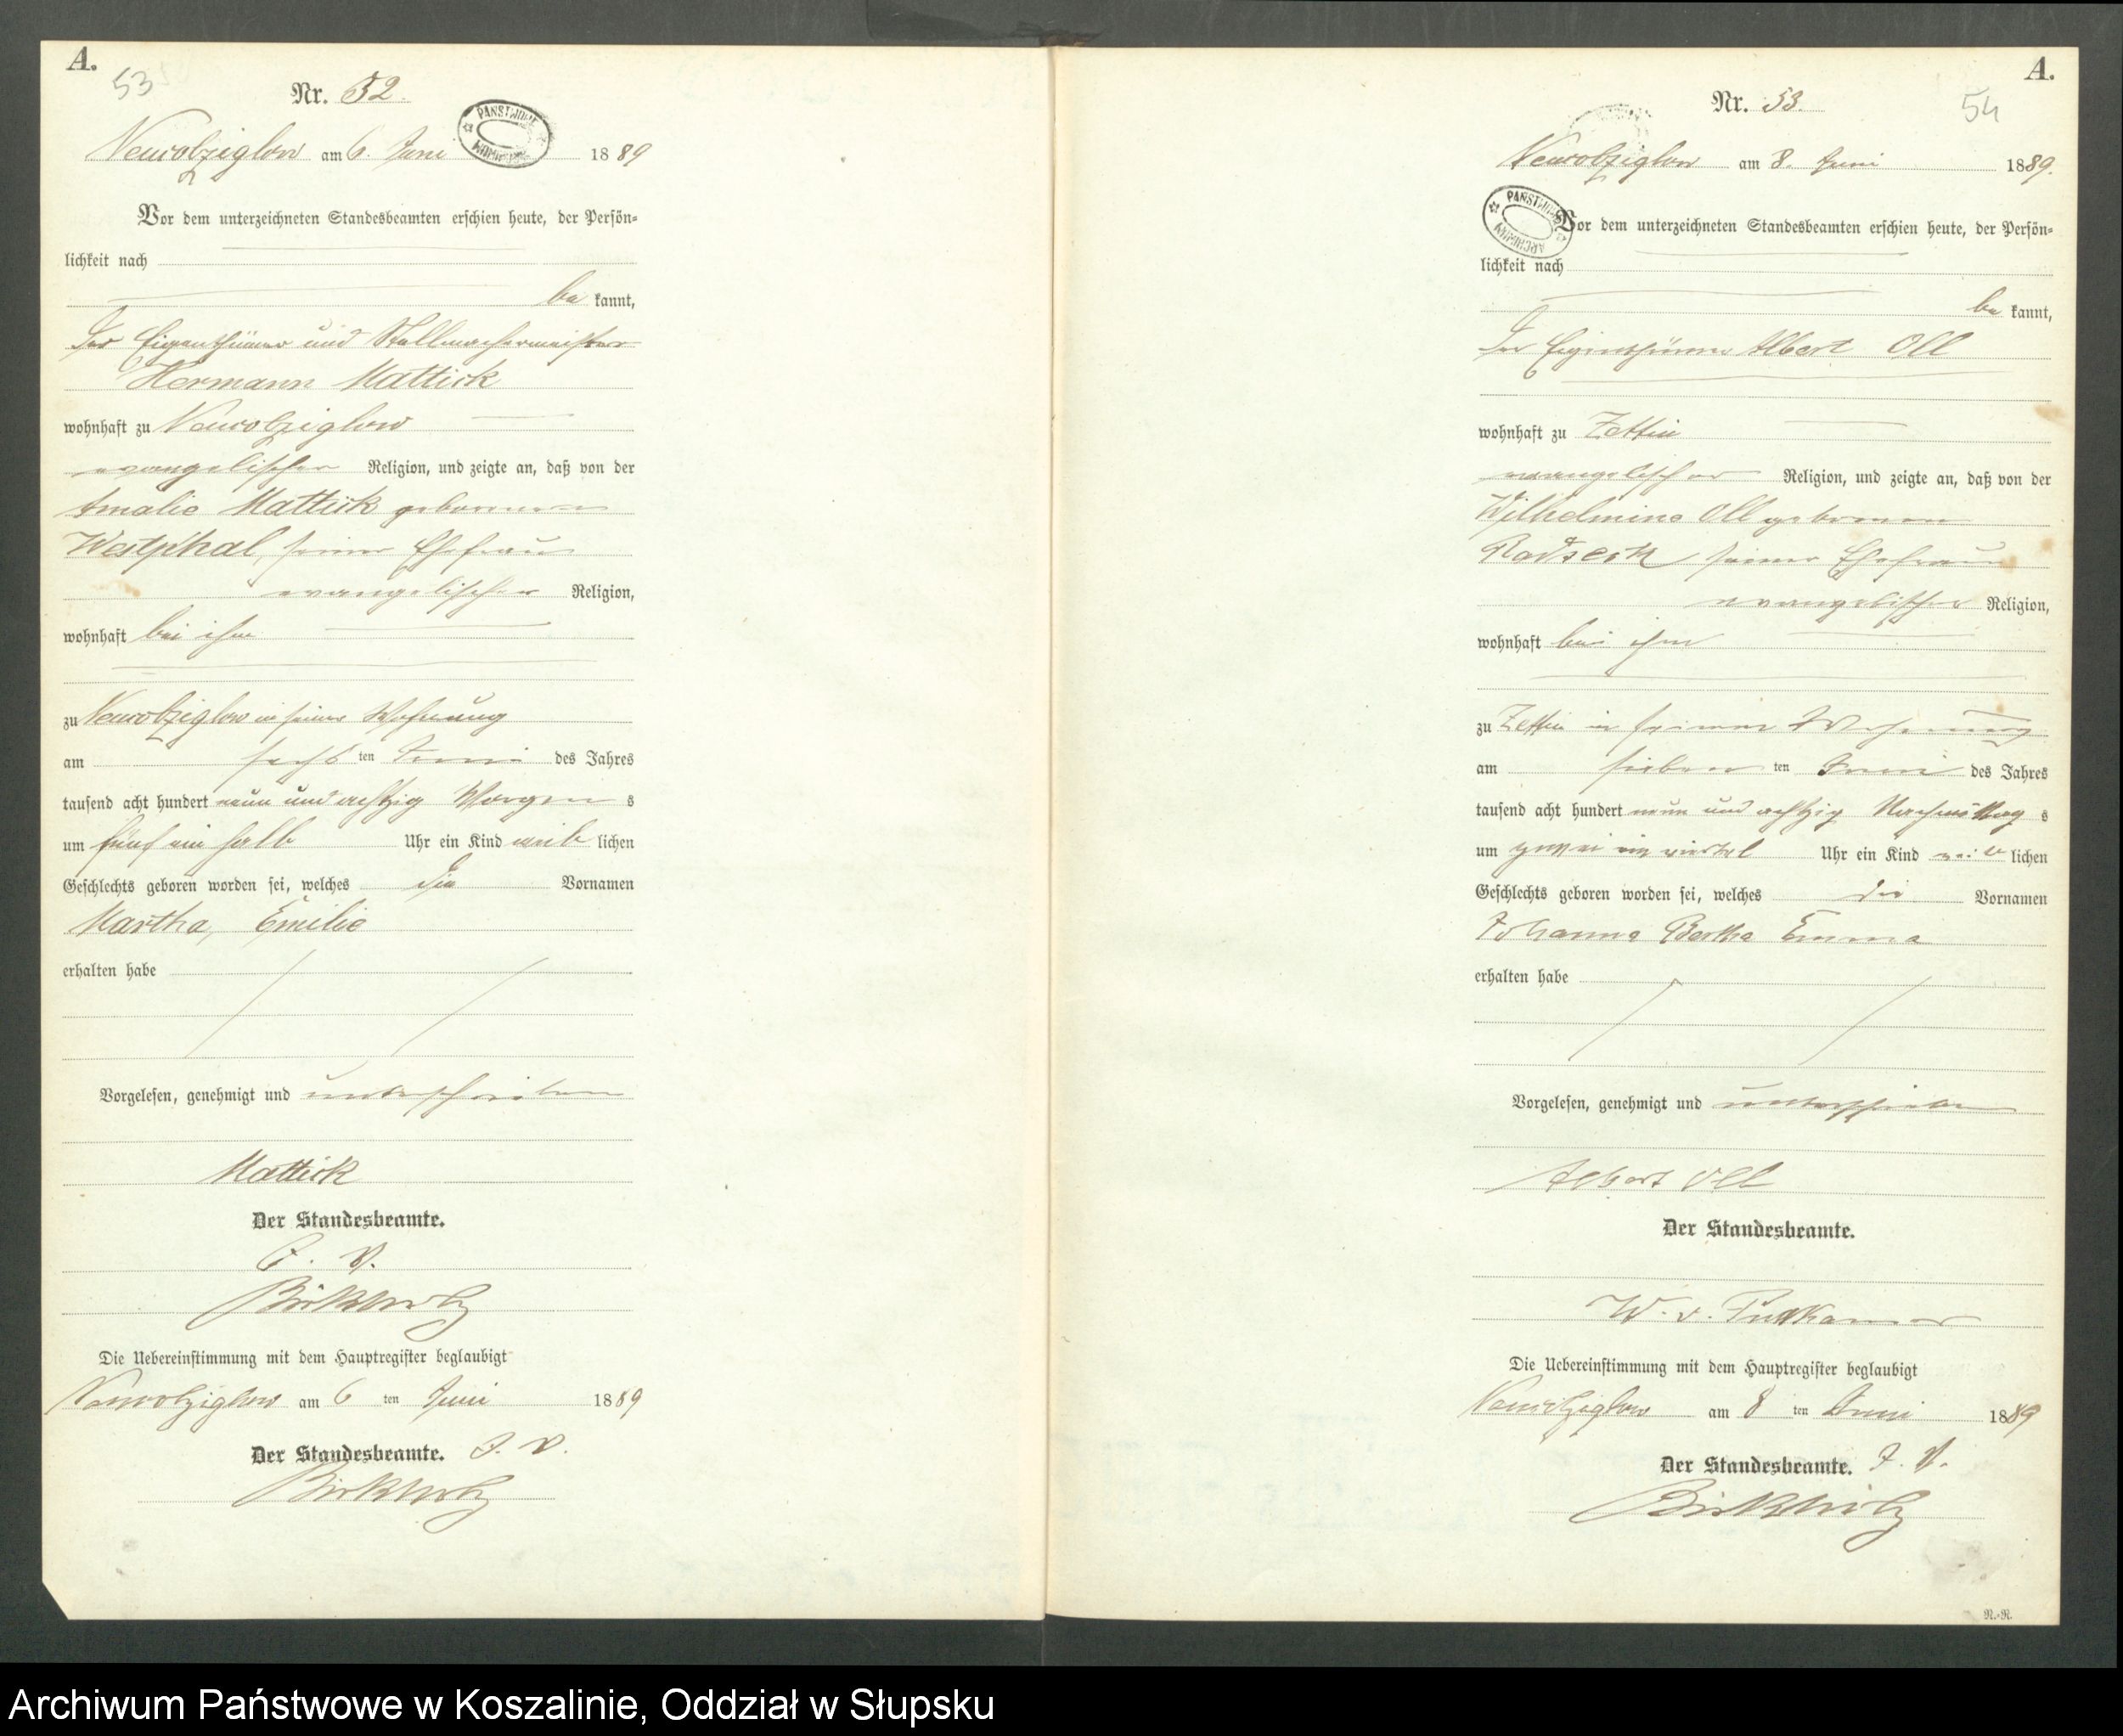 A.
53
Nr. 52.
PAŃSTWOWE
Neukolziglow am 6. Juni 1889
Vor dem unterzeichneten Standesbeamten erschien heute, der Persön=
lichkeit nach
be kannt,
Der Eigenthümer und Stellmachermeister
Hermann Mattick
wohnhaft zu Neukolziglow
evangelischer Religion, und zeigte an, daß von der
Amalie Mattick geborenen
Westphal, seiner Ehefrau
evangelischer Religion,
wohnhaft bei ihm
zu Neukolziglow in seiner Wohnung
am sechs ten Juni des Jahres
tausend acht hundert neun und achtzig Morgen s
um fünf ein halb Uhr ein Kind weib lichen
Geschlechts geboren worden sei, welches die Vornamen
Martha, Emilie
erhalten habe
Vorgelesen, genehmigt und unterschrieben
Mattick
Der Standesbeamte.
J. V.
Birkholz
Die Uebereinstimmung mit dem Hauptregister beglaubigt
Neukolziglow am 6 ten Juni 1889
Der Standesbeamte. J. V.
Birkholz
A.
54
Nr. 53.
Neukolziglow am 8. Juni 1889.
PAŃSTWOWE
ARCHIWUM
Vor dem unterzeichneten Standesbeamten erschien heute, der Persön=
lichkeit nach
be kannt,
Der Eigenthümer Albert Oll
wohnhaft zu Zettin
evangelischer Religion, und zeigte an, daß von der
Wilhelmine Oll geborenen
seiner Ehefrau
evangelischer Religion,
wohnhaft bei ihm
zu Zettin in seiner Wohnung
am sieben ten Juni des Jahres
tausend acht hundert neun und achtzig Nachmittag s
um zwei ein viertel Uhr ein Kind weib lichen
Geschlechts geboren worden sei, welches die Vornamen
Johanna Bertha Emma
erhalten habe
Vorgelesen, genehmigt und unterschrieben
Albert Oll
Der Standesbeamte.
W. v. Puttkamer
Die Uebereinstimmung mit dem Hauptregister beglaubigt
Neukolziglow am 8 ten Juni 1889
Der Standesbeamte. J. V.
Birkholz
R.-R.
Archiwum Państwowe w Koszalinie, Oddział w Słupsku